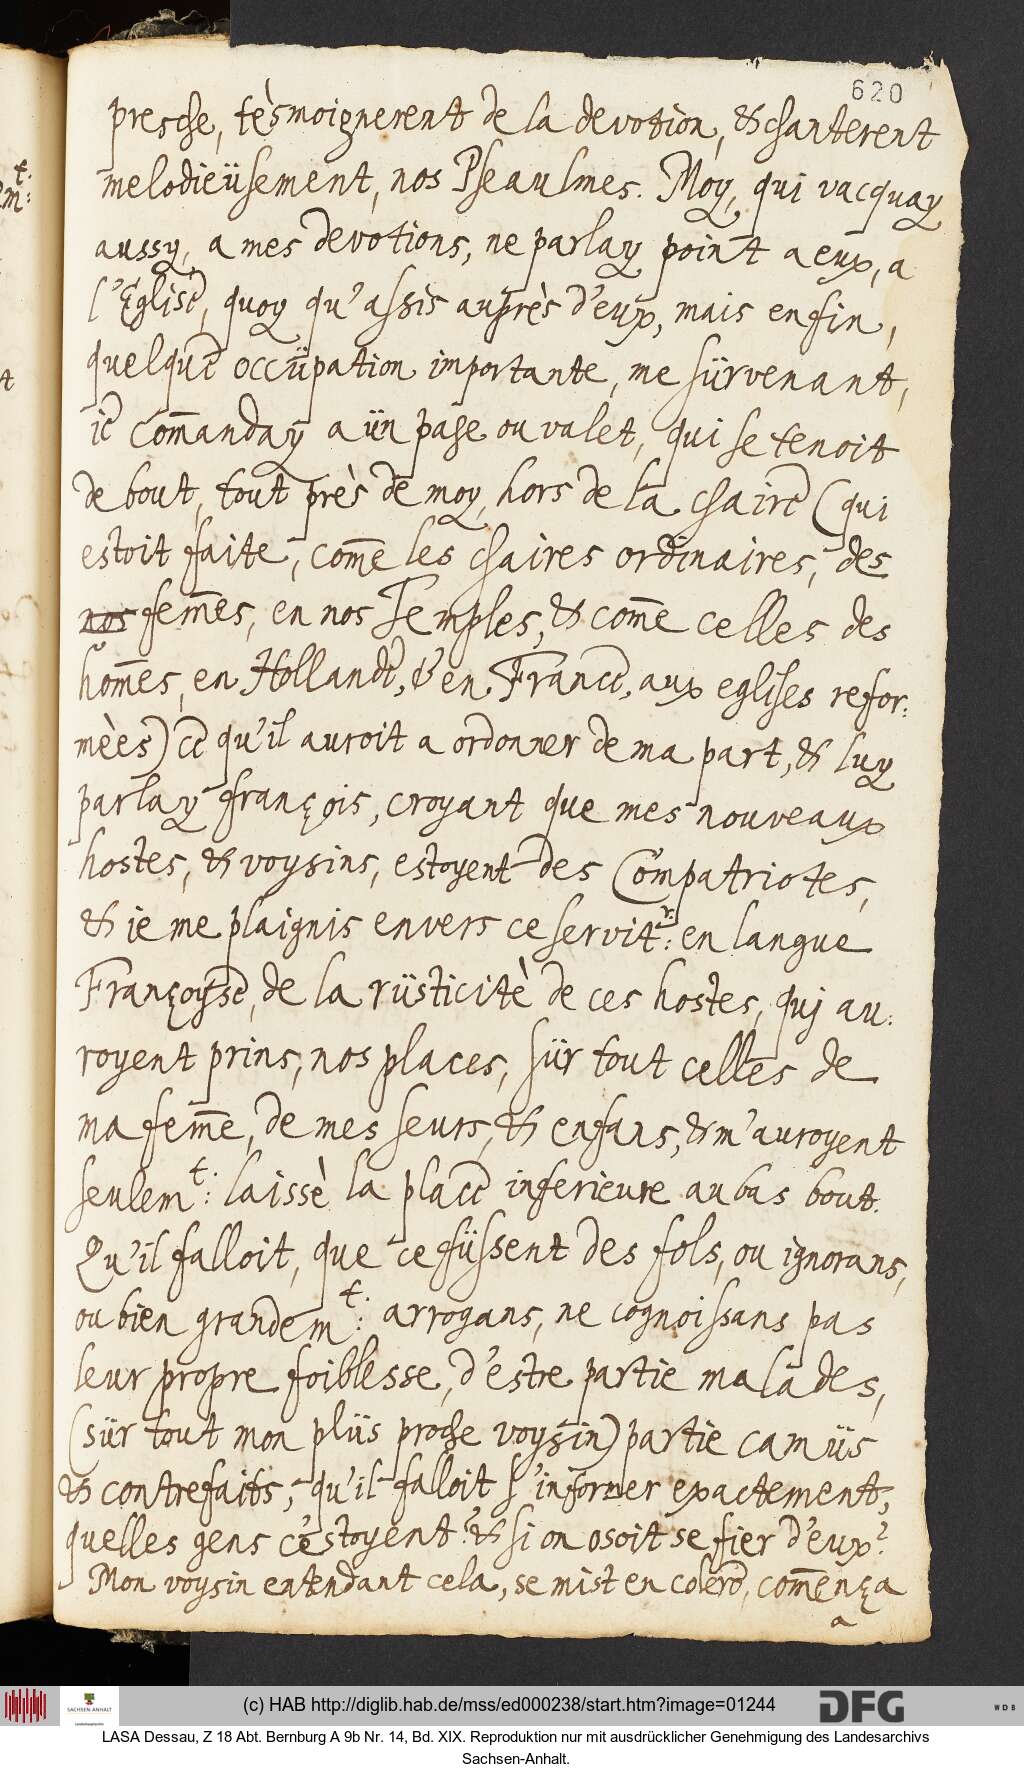 620
presche, tèsmoignerent de la devotion, & chanterent
melodieüsement, nos Pseaulmes. Moy, qui vacquay
aussy, a mes devotions, ne parlay point a eux, a
l'Eglise, quoy qu'assis auprès d'eux, mais enfin,
quelque occüpation importante, me sürvenant,
ie com̄anday a ün page ou valet, qui se tenoit
de bout, tout près de moy, hors de la chaire (qui
estoit faite, com̄e les chaires ordinaires, des
nos fem̄es, en nos Temples, & com̄e celles des
hom̄es, en Hollande, & en France, aux eglises refor:
mèes) ce qu'il auroit a ordonner de ma part, & luy
parlay françois, croyant que mes nouveaux
hostes, & voysins, estoyent des Compatriotes,
& ie me plaignis envers ce servit.r: en langue
Françoyse, de la rüsticitè de ces hostes, quj au:
royent prins, nos places, sür tout celles de
ma fem̄e, de mes seurs, & enfans, & m'auroyent
seulem.t: laissè la place inferieure au bas bout.
Qu'il falloit, que ce füssent des fols, ou ignorans,
ou bien grandem.t: arrogans, ne cognoissans pas
leur propre foiblesse, d'estre partie malades,
(sür tout mon plüs proche voysin) partie camüs
& contrefaits, qu'il falloit s'informer exactement,
quelles gens c'estoyent? & si on osoit se fier d'eux?
Mon voysin entendant cela, se mist en colere, com̄ença
a
t:
m:
t
(c) HAB http://diglib.hab.de/mss/ed000238/start.htm?image=01244
SACHSEN-ANHALT
DFG
WDB
LASA Dessau, Z 18 Abt. Bernburg A 9b Nr. 14, Bd. XIX. Reproduktion nur mit ausdrücklicher Genehmigung des Landesarchivs
Sachsen-Anhalt.